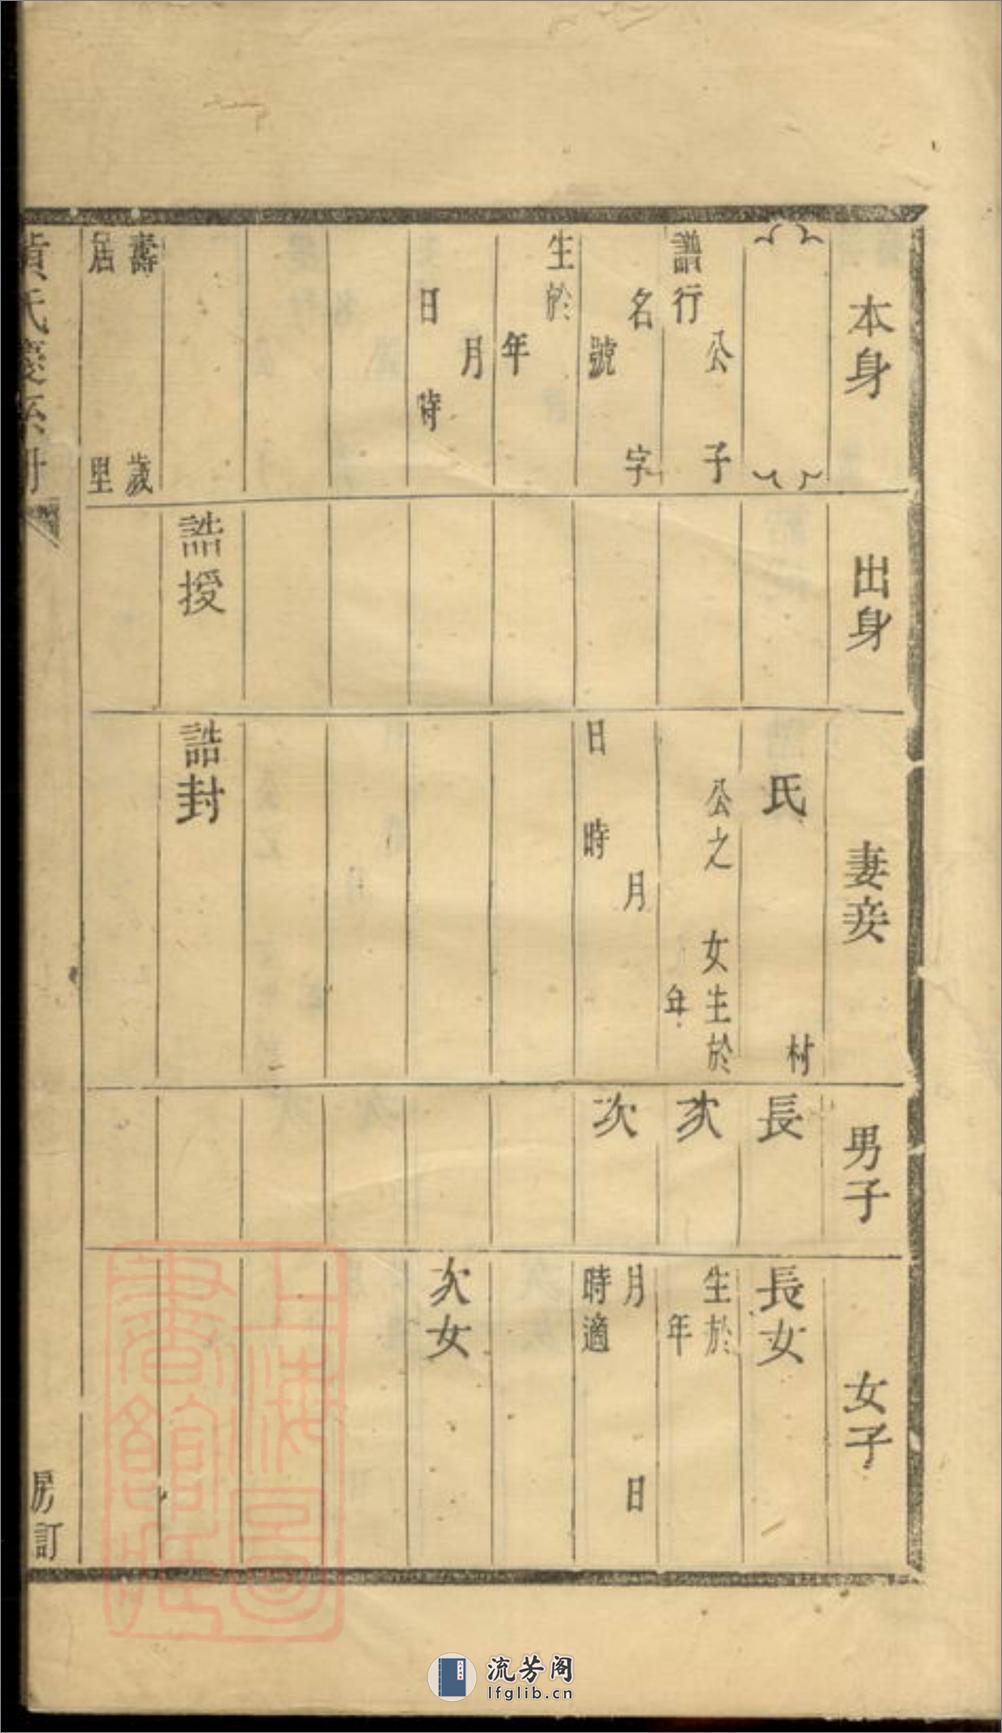 本身
譜行
公子
名字
號
生於
年
月
日時
壽歲
居里
出身
誥授
妻妾
氏
村
公之女生於
年
月
日時
誥封
男子
長
次
次
女子
長女
生於
年
月日
時適
次女
黃氏慶系冊
房訂
上海圖書館藏
流芳阁
lfglib.cn